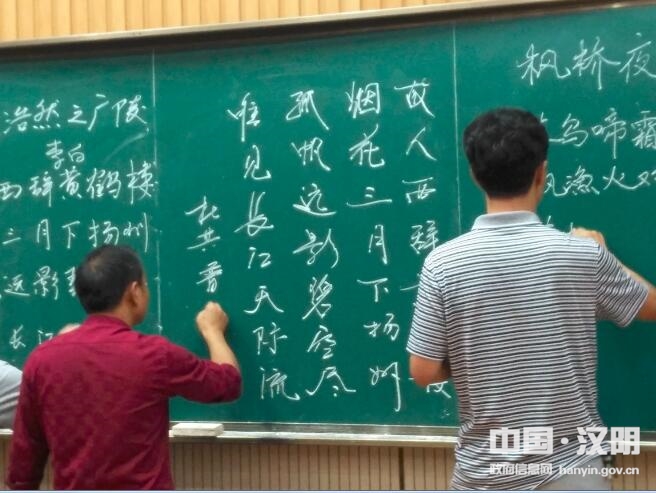 浩然之广陵
李白
西辞黄鹤楼
三月下扬州
远影
长江
故人西辞
烟花三月下扬州
孤帆远影碧空尽
唯见長江天际流
杜
枫桥夜
乌啼霜
渔火对
中国·汉阴
政府信息网 hanyin.gov.cn